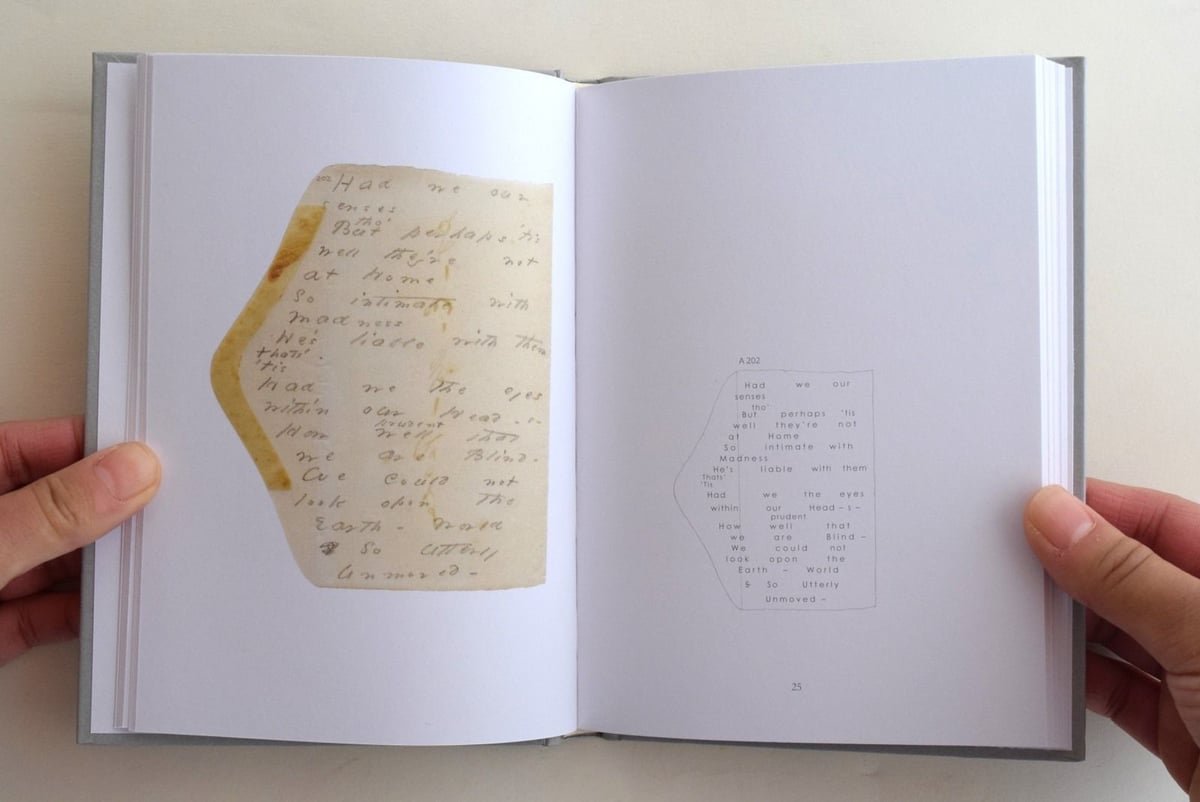 202 Had we our
senses
tho'
But perhaps 'tis
well they're not
at Home
So intimate with
Madness
He's liable with them
thats'
'tis
Had we the eyes
within our Head - s -
prudent
How well that
we are Blind -
We could not
look opon the
Earth - World
& So Utterly
Unmoved -
A 202
Had we our
senses
tho'
But perhaps 'tis
well they're not
at Home
So intimate with
Madness
He's liable with them
Thats'
'Tis
Had we the eyes
within our Head – s –
prudent
How well that
we are Blind –
We could not
look opon the
Earth – World
& So Utterly
Unmoved –
25